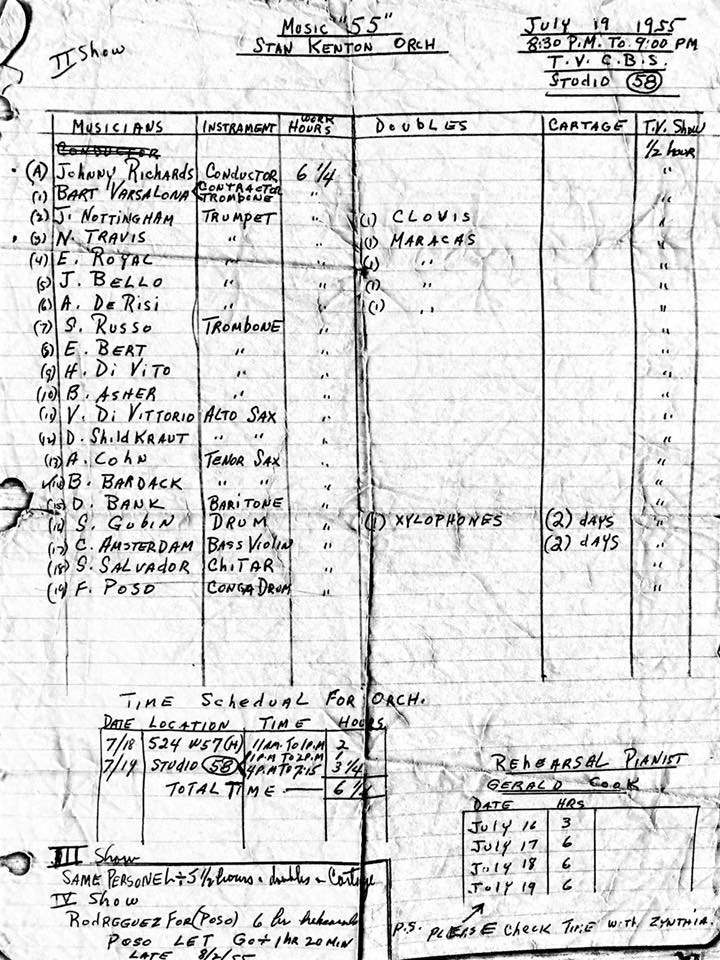 Music "55"
STAN KENTON ORCH
II Show
July 19 1955
8:30 P.M. TO 9:00 PM
T.V. C.B.S.
STUDIO 58
MUSICIANS INSTRAMENT WORK HOURS DOUBLES CARTAGE T.V. Show
CONDUCTOR 1/2 hour
(A) Johnny Richards CONDUCTOR 6 1/4 "
(1) BART VARSALONA CONTRACTOR TROMBONE " "
(2) J. NOTTINGHAM TRUMPET " (1) CLOVIS "
(3) N. TRAVIS " " (1) MARACAS "
(4) E. ROYAL " " (1) " "
(5) J. BELLO " " (1) " "
(6) A. DE RISI " " (1) " "
(7) S. RUSSO TROMBONE " "
(8) E. BERT " " "
(9) H. DI VITO " " "
(10) B. ASHER " " "
(11) V. DI VITTORIO ALTO SAX " "
(12) D. ShildKRAUT " " " "
(13) A. COHN TENOR SAX " "
(14) B. BARDACK " " "
(15) D. BANK BARITONE " "
(16) S. GUBIN DRUM " (1) XYLOPHONES (2) dAYS "
(17) C. AMSTERDAM BASS VIOLIN " (2) dAYS "
(18) S. SALVADOR ChiTAR " "
(19) F. POSO CONGA DRUM " "
TIME Schedual FOR ORCH.
DATE LOCATION TIME HOURS
7/18 524 W57(H) 11 A.M. TO 1 P.M 2
1 P.M TO 2 P.M 1
7/19 STUDIO 58 4 P.M TO 7:15 3 1/4
TOTAL TIME 6 1/4
REHEARSAL PIANIST
GERALD COOK
DATE HRS
July 16 3
July 17 6
July 18 6
July 19 6
P.S. PLEASE Check TIME with ZYNTHIA.
III Show
SAME PERSONEL ÷ 5 1/2 hours doubles Cartage
IV Show
RODREGUEZ FOR (POSO) 6 hr
POSO LET GO ÷ 1 HR 20 MIN
LATE 8/2/55